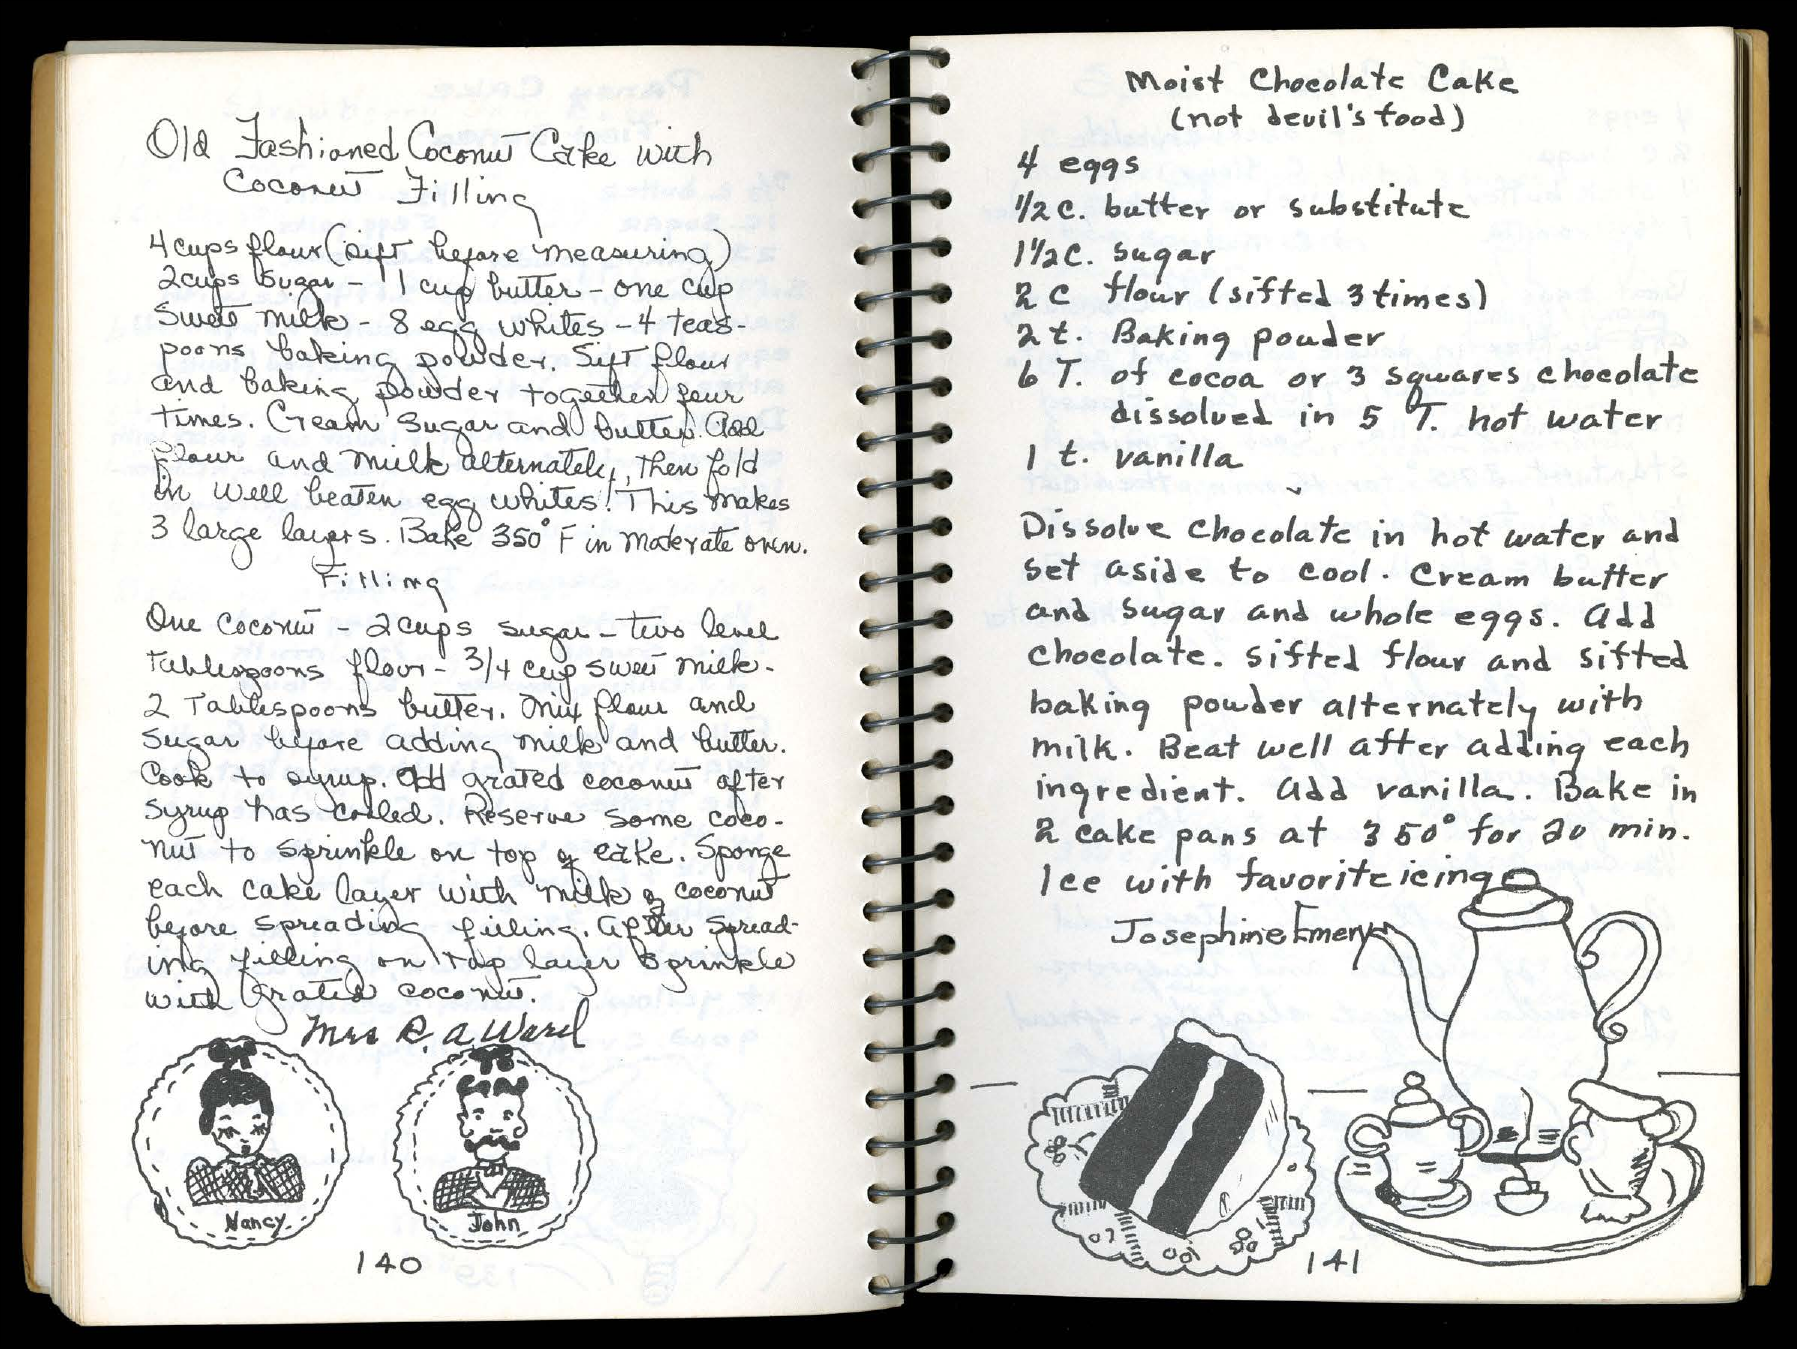 Old Fashioned Coconut Cake with
Coconut Filling
4 cups flour (sift before measuring)
2 cups sugar - 1 cup butter - one cup
sweet milk - 8 egg whites - 4 teas-
poons baking powder. Sift flour
and baking powder together four
times. Cream sugar and butter. Add
flour and milk alternately, then fold
in well beaten egg whites! This makes
3 large layers. Bake 350° F in moderate oven.
Filling
One coconut - 2 cups sugar - two level
tablespoons flour - 3/4 cup sweet milk -
2 Tablespoons butter. Mix flour and
sugar before adding milk and butter.
Cook to syrup. Add grated coconut after
syrup has cooled. Reserve some coco-
nut to sprinkle on top of cake. Sponge
each cake layer with milk of coconut
before spreading filling. After spread-
ing filling on top layer sprinkle
with grated coconut.
Mrs R. A. Ward
Nancy
John
140
Moist Chocolate Cake
(not devil's food)
4 eggs
1/2 c. butter or substitute
1 1/2 c. sugar
2 c flour (sifted 3 times)
2 t. Baking powder
6 T. of cocoa or 3 squares chocolate
dissolved in 5 T. hot water
1 t. vanilla
Dissolve chocolate in hot water and
set aside to cool. Cream butter
and sugar and whole eggs. Add
chocolate. Sifted flour and sifted
baking powder alternately with
milk. Beat well after adding each
ingredient. Add vanilla. Bake in
2 cake pans at 350° for 20 min.
Ice with favorite icing
Josephine Emery
141